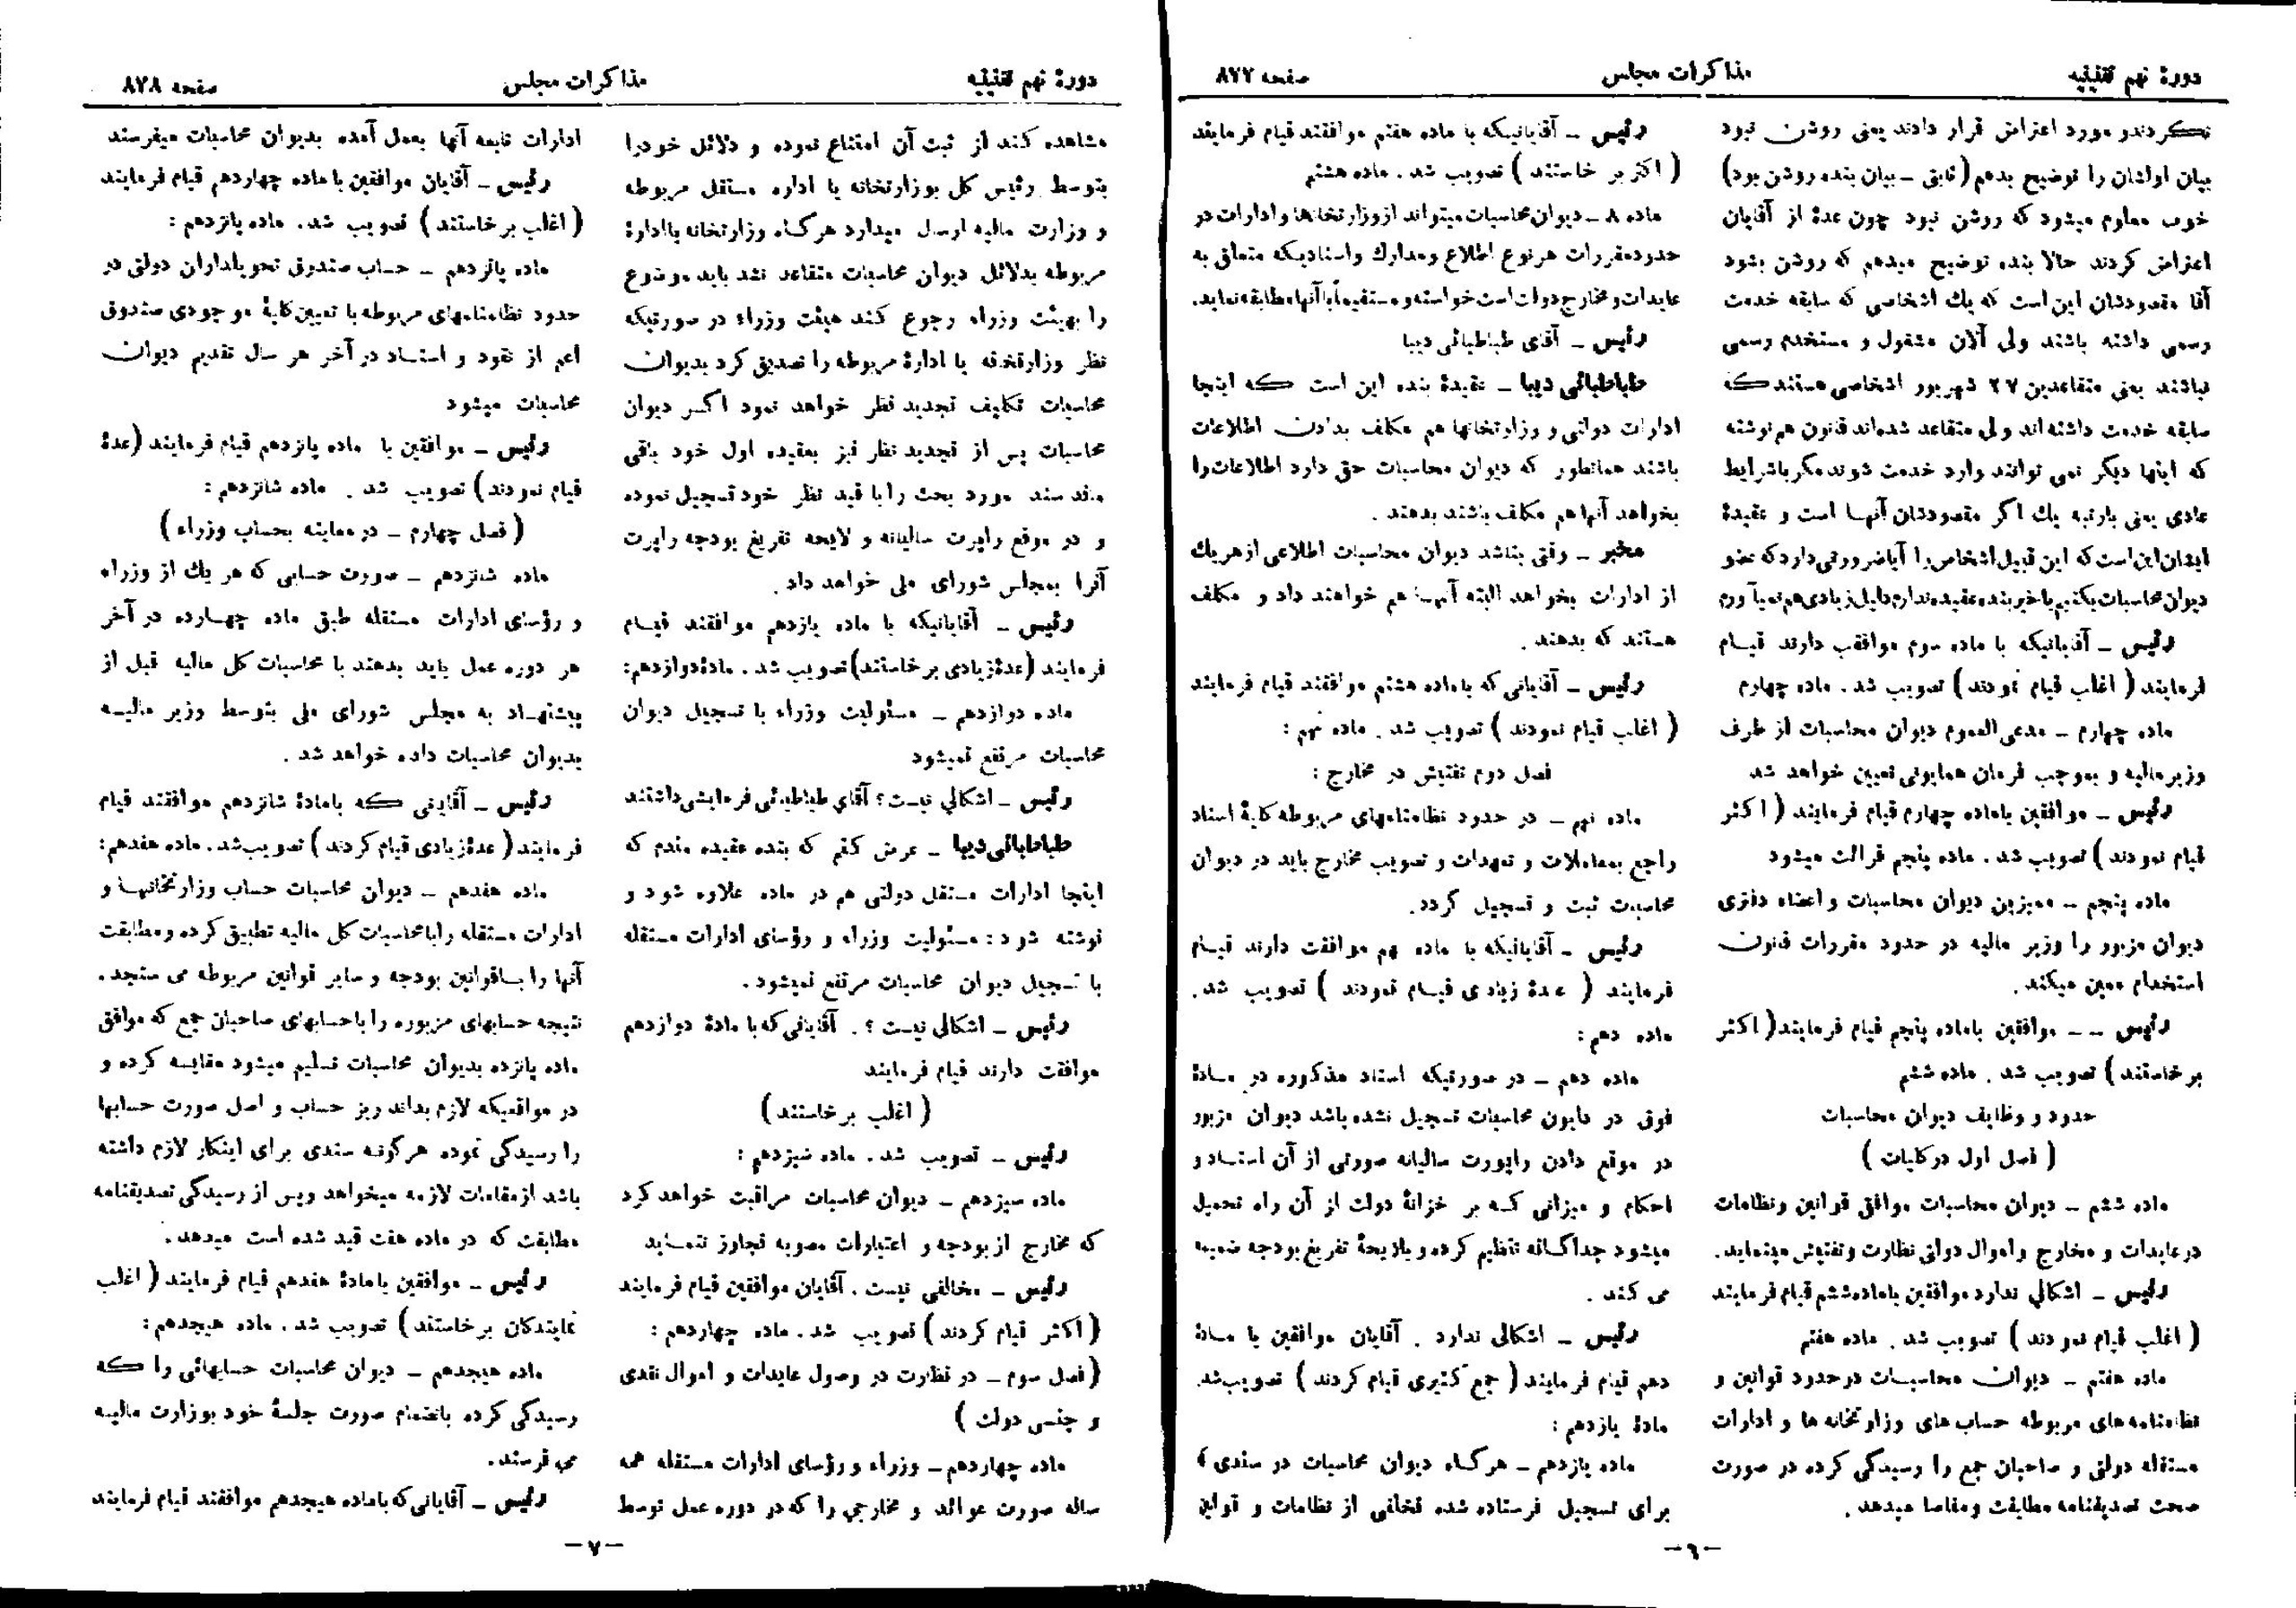 دورهٔ نهم تقنینیه
مذاکرات مجلس
صفحه ۸۷۷
نکردند و مورد اعتراض قرار دادند یعنی روشن نبود
بیان اوشان را توضیح بدهم (نایق ـ بیان بنده روشن بود)
خوب معلوم میشود که روشن نبود چون عدهٔ از آقایان
اعتراض کردند حالا بنده توضیح میدهم که روشن بشود
آقا مقصودشان این است که یك اشخاصی که سابقه خدمت
رسمی داشته باشند ولی الان مشغول و مستخدم رسمی
نباشند یعنی متقاعدین ۲۷ شهریور اشخاصی هستند که
سابقه خدمت داشته‌اند ولی متقاعد شده‌اند قانون هم نوشته
که اینها دیگر نمی توانند وارد خدمت شوند مگر باشرایط
عادی یعنی بارتبه یك اگر مقصودشان آنها است و عقیدهٔ
ایشان این است که این قبیل اشخاص را آیا ضرورتی دارد که عضو
دیوان محاسبات بکنیم یا خیر بنده عقیده ندارم دلیل زیادی هم نمیآورم
رئیس ـ آقایانیکه با ماده سوم موافقت دارند قیام
فرمایند ( اغلب قیام نمودند ) تصویب شد . ماده چهارم
ماده چهارم ـ مدعی العموم دیوان محاسبات از طرف
وزیر مالیه و بموجب فرمان همایونی تعیین خواهد شد
رئیس ـ موافقین باماده چهارم قیام فرمایند ( اکثر
قیام نمودند ) تصویب شد . ماده پنجم قرائت میشود
ماده پنجم ـ ممیزین دیوان محاسبات و اعضاء دفتری
دیوان مزبور را وزیر مالیه در حدود مقررات قانون
استخدام معین میکند .
رئیس ـ ـ موافقین باماده پنجم قیام فرمایند ( اکثر
برخاستند ) تصویب شد . ماده ششم
حدود و وظایف دیوان محاسبات
( فصل اول در کلیات )
ماده ششم ـ دیوان محاسبات موافق قوانین ونظامات
در عایدات و مخارج و اموال دولتی نظارت و تفتیش مینماید.
رئیس ـ اشکالی ندارد موافقین باماده ششم قیام فرمایند
( اغلب قیام نمودند ) تصویب شد . ماده هفتم
ماده هفتم ـ دیوان محاسبات در حدود قوانین و
نظامنامه‌های مربوطه حساب های وزارتخانه ها و ادارات
مستقله دولتی و صاحبان جمع را رسیدگی کرده در صورت
صحت تصدیقنامه مطابقت ومفاصا میدهد .
رئیس ـ آقایانیکه با ماده هفتم موافقند قیام فرمایند
( اکثر بر خاستند ) تصویب شد . ماده هشتم
ماده ۸ ـ دیوان محاسبات میتواند از وزارتخانها و ادارات در
حدود مقررات هر نوع اطلاع ومدارك واسنادیکه متعلق به
عایدات و مخارج دولت است خواسته و مستقیماً با آنها مطابقه نماید.
رئیس ـ آقای طباطبائی دیبا
طباطبائی دیبا ـ عقیدهٔ بنده این است که اینجا
ادارات دولتی و وزارتخانها هم مکلف بدادن اطلاعات
باشند همانطور که دیوان محاسبات حق دارد اطلاعات را
بخواهد آنها هم مکلف باشند بدهند .
مخبر ـ وقتی بناشد دیوان محاسبات اطلاعی از هر یك
از ادارات بخواهد البته آنها هم خواهند داد و مکلف
هستند که بدهند .
رئیس ـ آقایانی که باماده هشتم موافقند قیام فرمایند
( اغلب قیام نمودند ) تصویب شد . ماده نهم :
فصل دوم تفتیش در مخارج :
ماده نهم ـ در حدود نظامنامهای مربوطه کلیهٔ اسناد
راجع بمعاملات و تعهدات و تصویب مخارج باید در دیوان
محاسبات ثبت و تسجیل گردد.
رئیس ـ آقایانیکه با ماده نهم موافقت دارند قیام
فرمایند ( عدهٔ زیادی قیام نمودند ) تصویب شد.
ماده دهم :
ماده دهم ـ در صورتیکه اسناد مذکوره در مادهٔ
فوق در دیوان محاسبات تسجیل نشده باشد دیوان مزبور
در موقع دادن راپورت سالیانه صورتی از آن اسناد و
احکام و میزانی که بر خزانهٔ دولت از آن راه تحمیل
میشود جداگانه تنظیم کرده و بلایحهٔ تفریغ بودجه ضمیمه
می کند .
رئیس ـ اشکالی ندارد . آقایان موافقین با مادهٔ
دهم قیام فرمایند ( جمع کثیری قیام کردند ) تصویب شد.
مادهٔ یازدهم :
ماده یازدهم ـ هرگاه دیوان محاسبات در سندی که
برای تسجیل فرستاده شده تخلفی از نظامات و قوانین
ـ ۶ ـ
دورهٔ نهم تقنینیه
مذاکرات مجلس
صفحه ۸۷۸
مشاهده کند از ثبت آن امتناع نموده و دلائل خودرا
بتوسط رئیس کل بوزارتخانه یا اداره مستقل مربوطه
و وزارت مالیه ارسال میدارد هرگاه وزارتخانه یاادارهٔ
مربوطه بدلائل دیوان محاسبات متقاعد نشد باید موضوع
را بهیئت وزراء رجوع کند هیئت وزراء در صورتیکه
نظر وزارتخانه یا ادارهٔ مربوطه را تصدیق کرد بدیوان
محاسبات تکلیف تجدید نظر خواهد نمود اگر دیوان
محاسبات پس از تجدید نظر نیز بعقیده اول خود باقی
ماند سند مورد بحث را با قید نظر خود تسجیل نموده
و در موقع راپرت سالیانه و لایحه تفریغ بودجه راپرت
آنرا بمجلس شورای ملی خواهد داد.
رئیس ـ آقایانیکه با ماده یازدهم موافقند قیام
فرمایند (عدهٔ زیادی برخاستند) تصویب شد . مادهٔ دوازدهم:
ماده دوازدهم ـ مسئولیت وزراء با تسجیل دیوان
محاسبات مرتفع نمیشود
رئیس ـ اشکالی نیست؟ آقای طباطبائی فرمایشی داشتند
طباطبائی دیبا ـ عرض کنم که بنده عقیده مندم که
اینجا ادارات مستقل دولتی هم در ماده علاوه شود و
نوشته شود : مسئولیت وزراء و رؤسای ادارات مستقله
با تسجیل دیوان محاسبات مرتفع نمیشود.
رئیس ـ اشکالی نیست ؟ . آقایانی که با مادهٔ دوازدهم
موافقت دارند قیام فرمایند
( اغلب برخاستند )
رئیس ـ تصویب شد . ماده سیزدهم :
ماده سیزدهم ـ دیوان محاسبات مراقبت خواهد کرد
که مخارج از بودجه و اعتبارات مصوبه تجاوز ننماید
رئیس ـ مخالفی نیست . آقایان موافقین قیام فرمایند
( اکثر قیام کردند ) تصویب شد . ماده چهاردهم :
(فصل سوم ـ در نظارت در وصول عایدات و اموال نقدی
و جنسی دولت )
ماده چهاردهم ـ وزراء و رؤسای ادارات مستقله همه
ساله صورت عوائد و مخارجی را که در دوره عمل توسط
ادارات تابعه آنها بعمل آمده بدیوان محاسبات میفرستند
رئیس ـ آقایان موافقین با ماده چهاردهم قیام فرمایند
( اغلب برخاستند ) تصویب شد. ماده پانزدهم :
ماده پانزدهم ـ حساب صندوق تحویلداران دولتی در
حدود نظامنامهای مربوطه با تعیین کلیهٔ موجودی صندوق
اعم از نقود و اسناد در آخر هر سال تقدیم دیوان
محاسبات میشود
رئیس ـ موافقین با ماده پانزدهم قیام فرمایند (عدهٔ
قیام نمودند) تصویب شد . ماده شانزدهم :
( فصل چهارم ـ در معاینه بحساب وزراء )
ماده شانزدهم ـ صورت حسابی که هر یك از وزراء
و رؤسای ادارات مستقله طبق ماده چهارده در آخر
هر دوره عمل باید بدهند با محاسبات کل مالیه قبل از
پیشنهاد به مجلس شورای ملی بتوسط وزیر مالیه
بدیوان محاسبات داده خواهد شد .
رئیس ـ آقایانی که بامادهٔ شانزدهم موافقند قیام
فرمایند ( عدهٔ زیادی قیام کردند ) تصویب شد . ماده هفدهم:
ماده هفدهم ـ دیوان محاسبات حساب وزارتخانها و
ادارات مستقله را با محاسبات کل مالیه تطبیق کرده و مطابقت
آنها را با قوانین بودجه و سایر قوانین مربوطه می سنجد .
نتیجه حسابهای مزبوره را با حسابهای صاحبان جمع که موافق
ماده پانزده بدیوان محاسبات تسلیم میشود مقایسه کرده و
در مواقعیکه لازم بداند ریز حساب و اصل صورت حسابها
را رسیدگی نموده هرگونه سندی برای اینکار لازم داشته
باشد از مقامات لازمه میخواهد وپس از رسیدگی تصدیقنامه
مطابقت که در ماده هفت قید شده است میدهد.
رئیس ـ موافقین بامادهٔ هفدهم قیام فرمایند ( اغلب
نمایندگان برخاستند ) تصویب شد . ماده هیجدهم:
ماده هیجدهم ـ دیوان محاسبات حسابهائی را که
رسیدگی کرده بانضمام صورت جلسهٔ خود بوزارت مالیه
می فرستد.
رئیس ـ آقایانی که باماده هیجدهم موافقند قیام فرمایند
ـ ۷ ـ